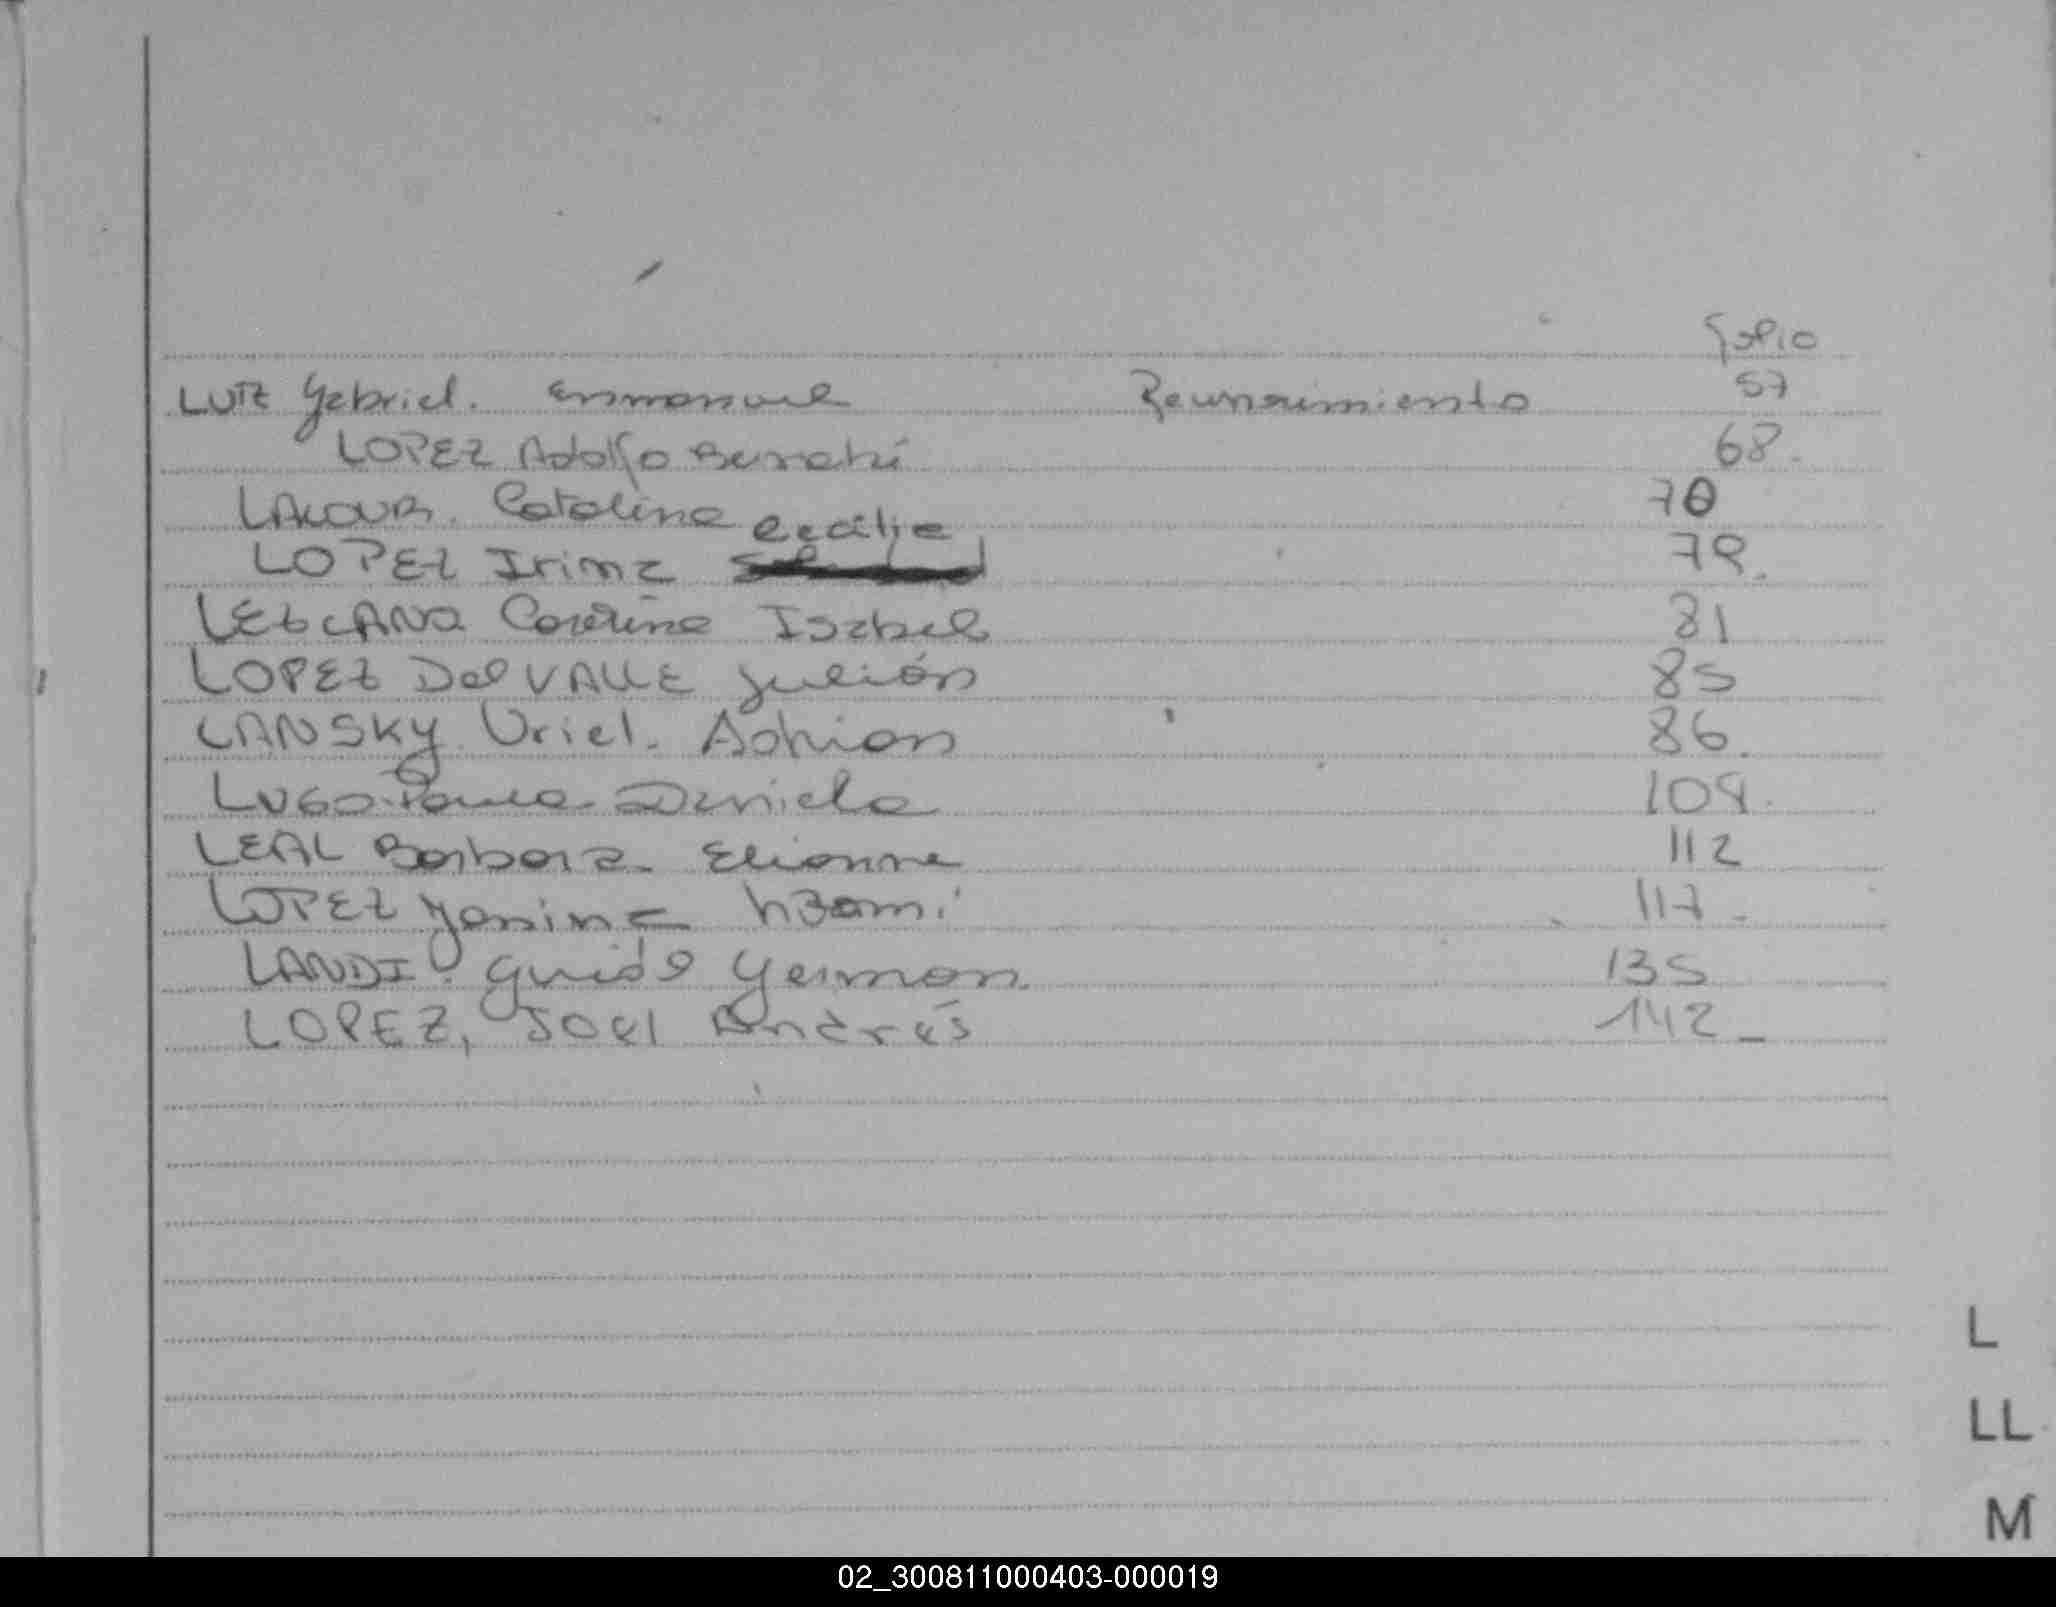 folio
LUTZ Gabriel. Emmanuel Reconocimiento 57
LOPEZ Adolfo 68.
Catalina Cecilia 70
LOPEZ Irina 79.
LEZCANO Carolina Isabel 81
LOPEZ Del VALLE Julián 85
LANSKY Uriel. Adrian 86.
LUGO Paula Daniela 109.
LEAL Barbara Elianne 112
LOPEZ Yanina 117.
LANDI. Guido German. 135
LOPEZ, Joel Andrés 142_
L
LL
M
02_300811000403-000019